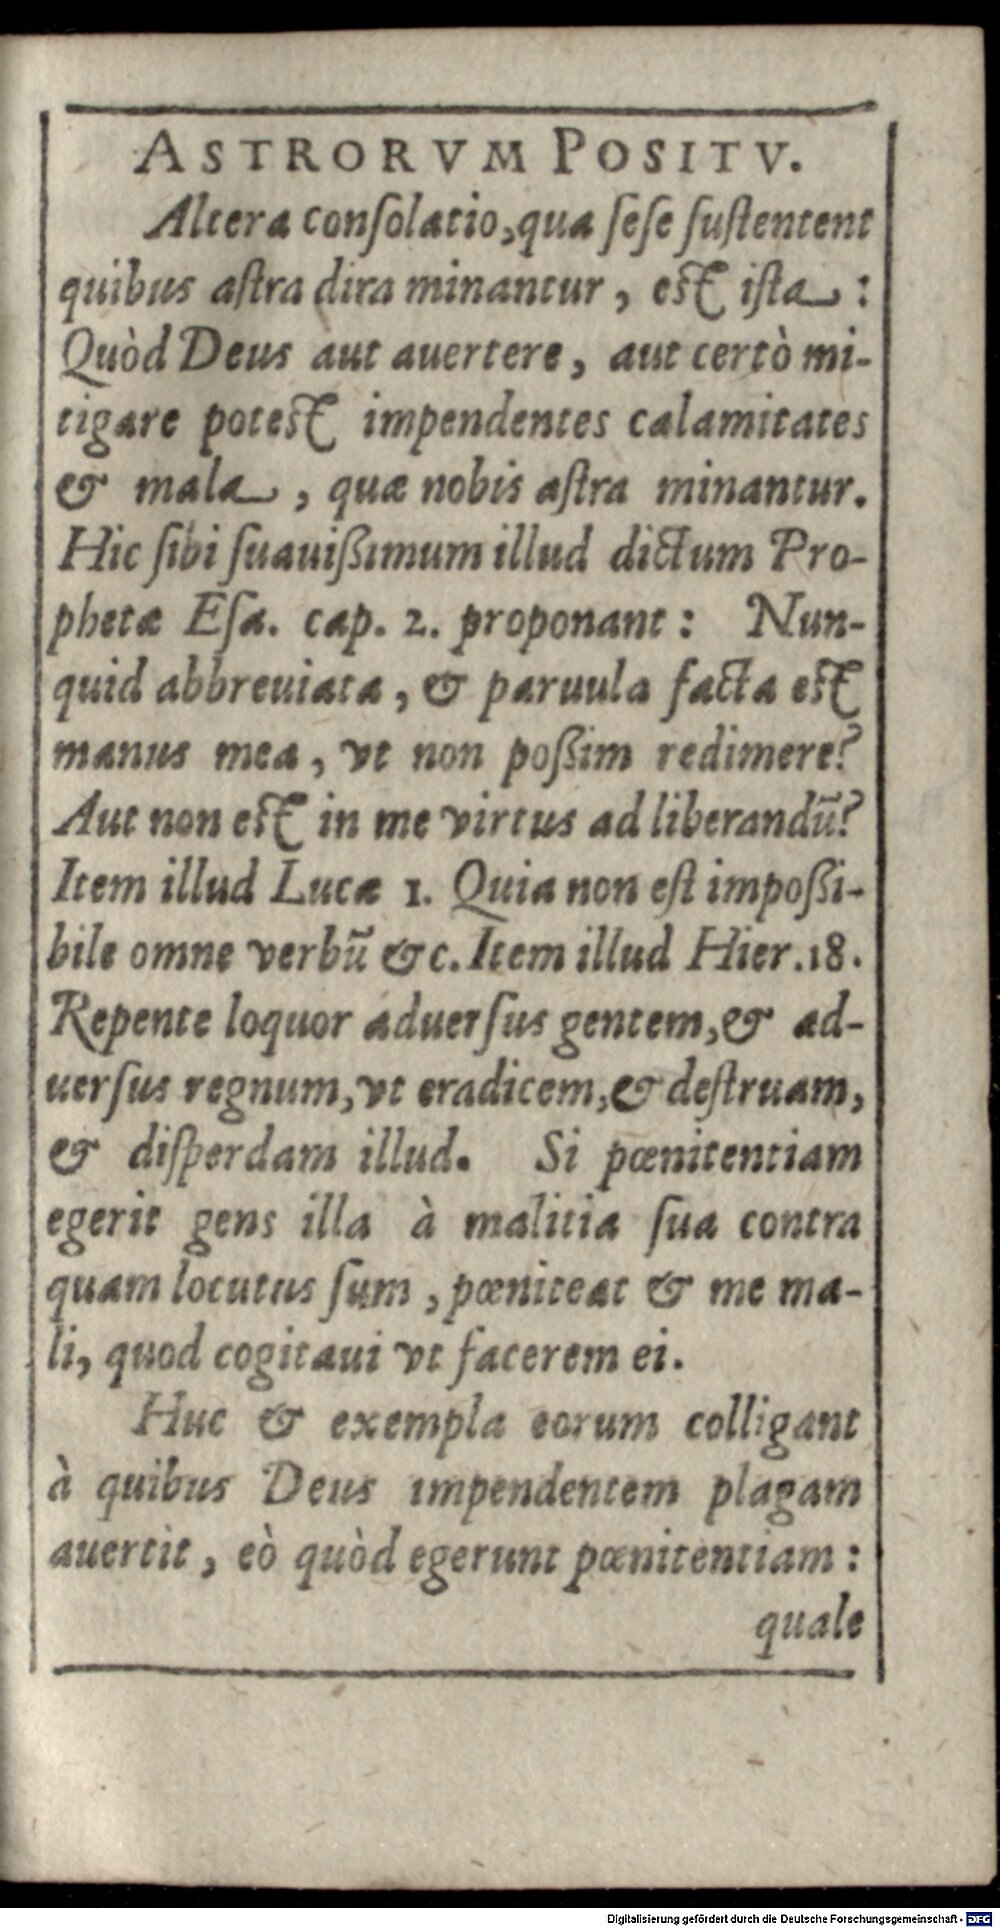 ASTRORVM POSITV.
Altera conſolatio, qua ſeſe ſuſtentent
quibus aſtra dira minantur, eſt iſta :
Quòd Deus aut auertere, aut certò mi-
tigare poteſt impendentes calamitates
& mala, quæ nobis aſtra minantur.
Hic ſibi ſuauißimum illud dictum Pro-
phetæ Eſa. cap. 2. proponant : Nun-
quid abbreuiata, & paruula facta eſt
manus mea, vt non poßim redimere?
Aut non eſt in me virtus ad liberandũ?
Item illud Lucæ 1. Quia non eſt impoßi-
bile omne verbũ &c. Item illud Hier. 18.
Repente loquor aduerſus gentem, & ad-
uerſus regnum, vt eradicem, & deſtruam,
& diſperdam illud. Si pœnitentiam
egerit gens illa à malitia ſua contra
quam locutus ſum, pœniteat & me ma-
li, quod cogitaui vt facerem ei.
Huc & exempla eorum colligant
à quibus Deus impendentem plagam
auertit, eò quòd egerunt pœnitentiam :
quale
Digitalisierung gefördert durch die Deutsche Forschungsgemeinschaft - DFG